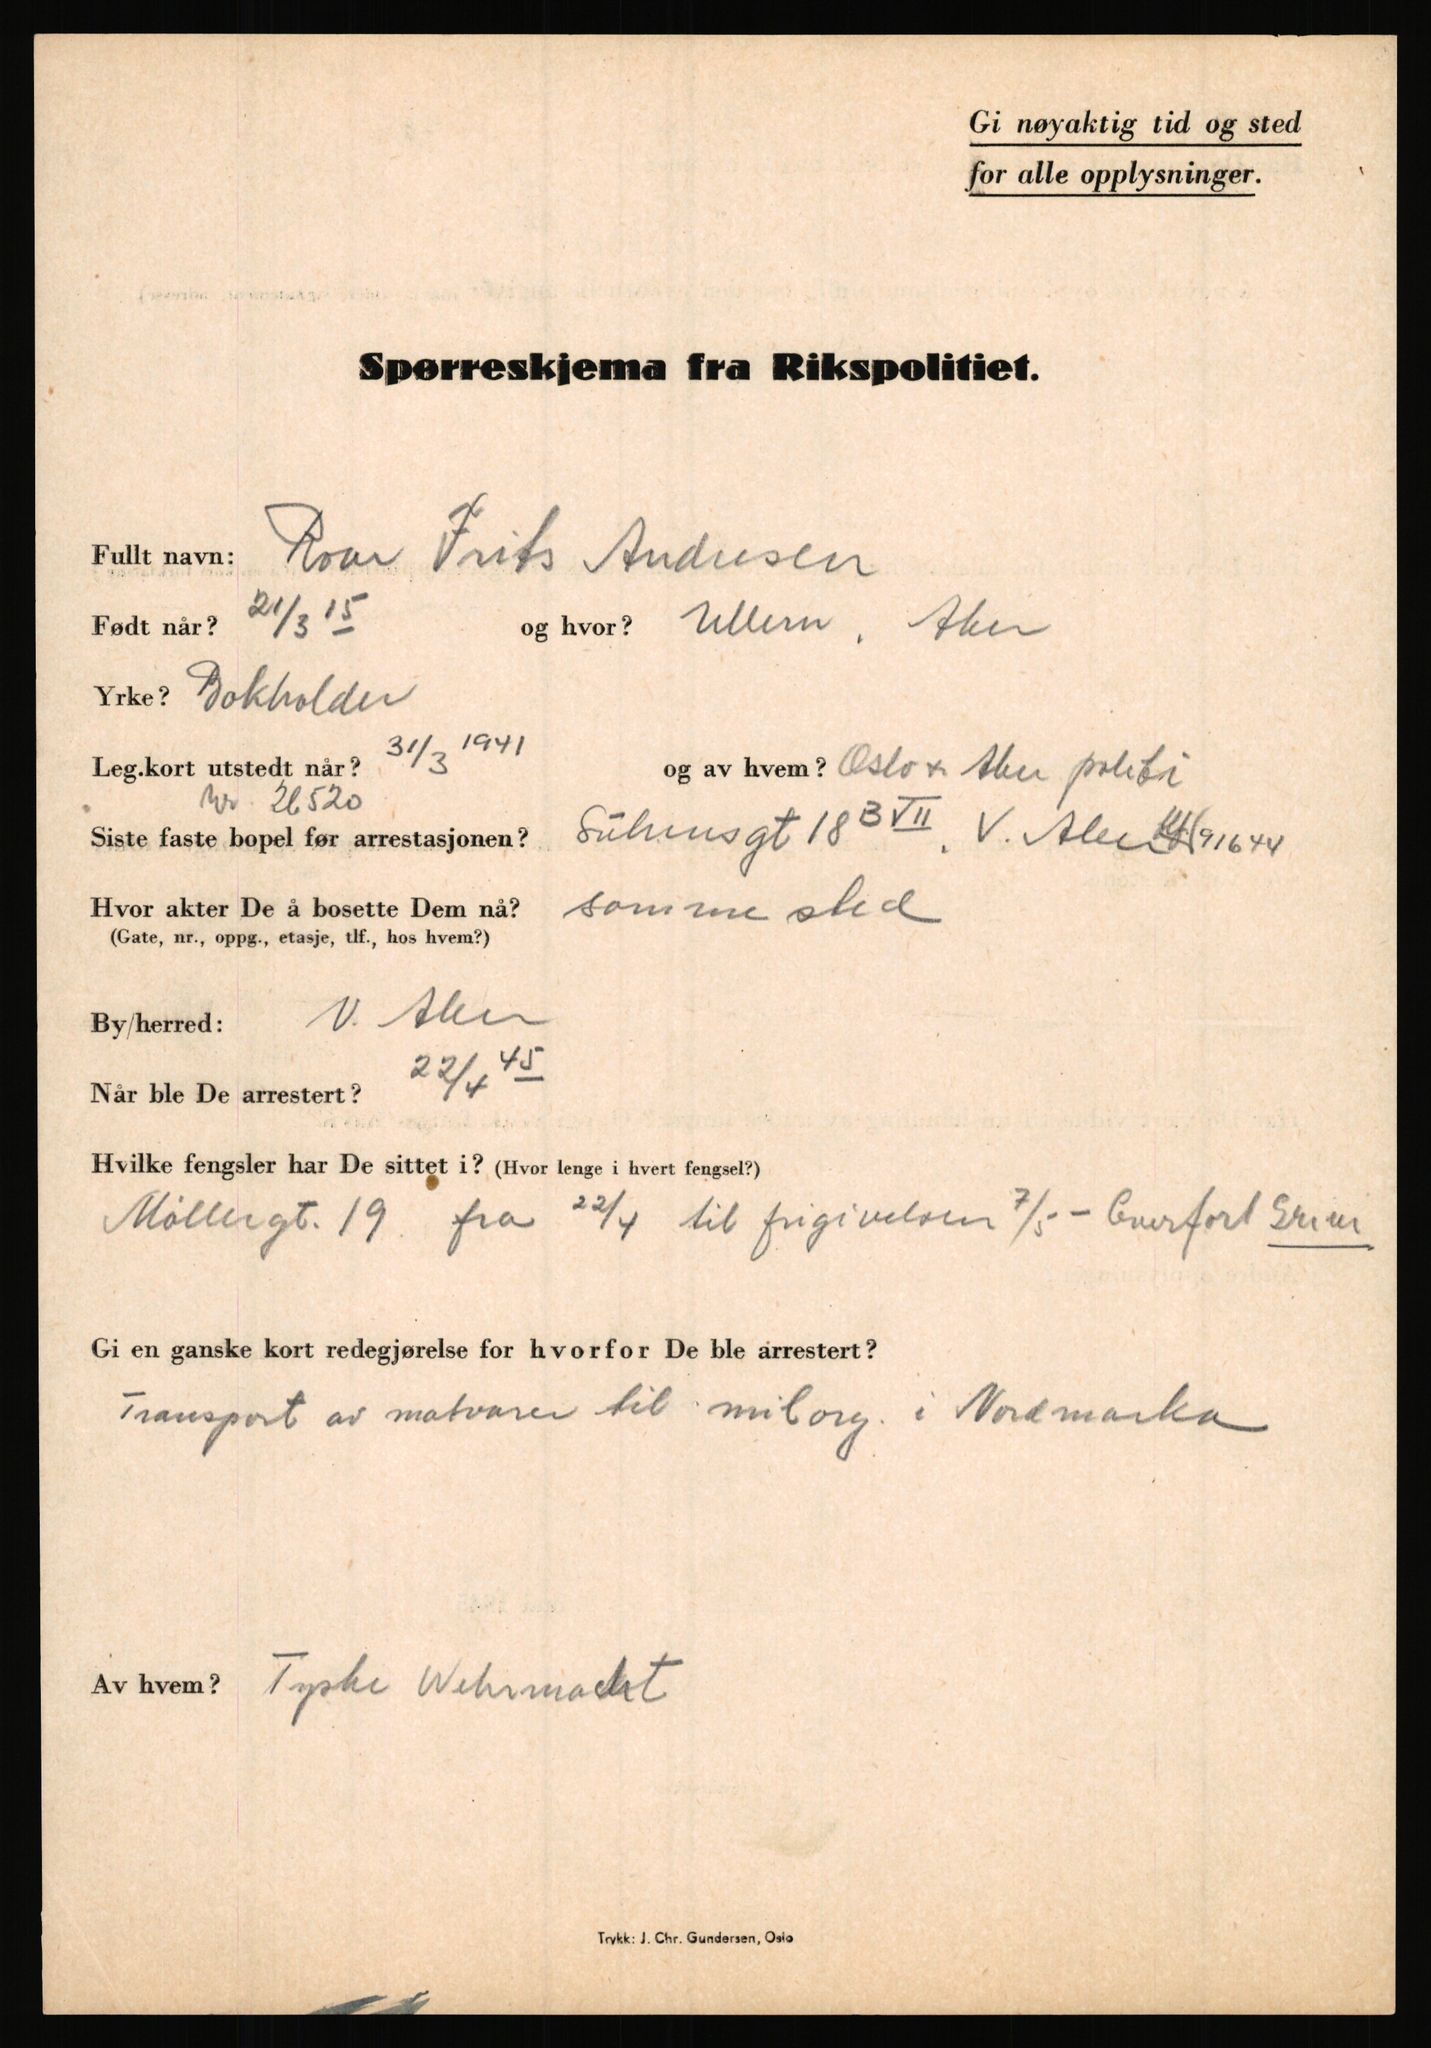 Gi nøyaktig tid og sted
for alle opplysninger.
Spørreskjema fra Rikspolitiet.
Fullt navn: Roar Frits Andresen
Født når? 21/3 15 og hvor? Ullern, Aker
Yrke? Bokholder
Leg.kort utstedt når? 31/3 1941 og av hvem? Oslo & Aker politi
Nr. 26520
Siste faste bopel før arrestasjonen? Suhmsgt 18 B VII, V. Aker 91644
Hvor akter De å bosette Dem nå? samme sted
(Gate, nr., oppg., etasje, tlf., hos hvem?)
By/herred: V. Aker
Når ble De arrestert? 22/4 45
Hvilke fengsler har De sittet i? (Hvor lenge i hvert fengsel?)
Møllergt. 19 fra 22/4 til frigivelsen 7/5 - Overført Grini
Gi en ganske kort redegjørelse for hvorfor De ble arrestert?
Transport av matvarer til milorg. i Nordmarka
Av hvem? Tyske Wehrmacht
Trykk: J. Chr. Gundersen, Oslo